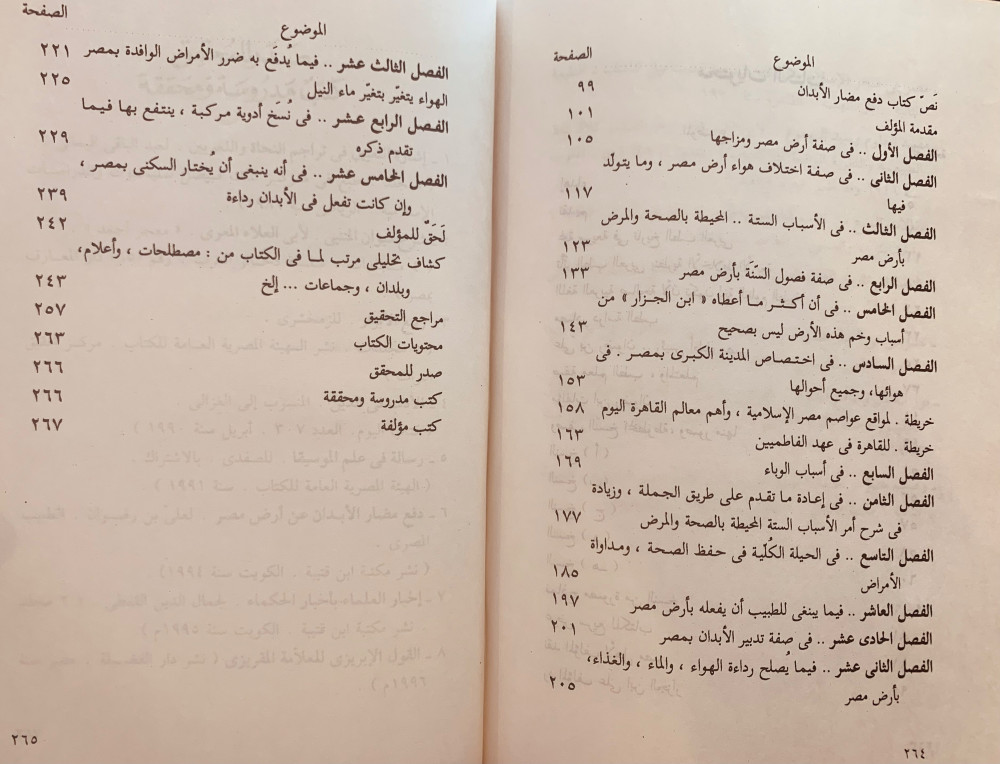 الموضوع
الصفحة
نَصّ كتاب دفع مضار الأبدان
٩٩
مقدمة المؤلف
١٠١
الفصل الأول .. فى صفة أرض مصر ومزاجها
١٠٥
الفصل الثانى .. فى صفة اختلاف هواء أرض مصر ، وما يتولّد
فيها
١١٧
الفصل الثالث .. فى الأسباب الستة .. المحيطة بالصحة والمرض
بأرض مصر
١٢٣
الفصل الرابع .. فى صفة فصول السّنَة بأرض مصر
١٣٣
الفصل الخامس .. فى أن أكثر ما أعطاه « ابن الجزار » من
أسباب وخم هذه الأرض ليس بصحيح
١٤٣
الفصل السادس .. فى اختصاص المدينة الكبرى بمصر . فى
هوائها، وجميع أحوالها
١٥٣
خريطة . لمواقع عواصم مصر الإسلامية ، وأهم معالم القاهرة اليوم
١٥٨
خريطة . للقاهرة فى عهد الفاطميين
١٦٣
الفصل السابع .. فى أسباب الوباء
١٦٩
الفصل الثامن .. فى إعادة ما تقدم على طريق الجملة ، وزيادة
فى شرح أمر الأسباب الستة المحيطة بالصحة والمرض
١٧٧
الفصل التاسع .. فى الحيلة الكُلّية فى حفظ الصحة ، ومداواة
الأمراض
١٨٥
الفصل العاشر .. فيما ينبغى للطبيب أن يفعله بأرض مصر
١٩٧
الفصل الحادى عشر .. فى صفة تدبير الأبدان بمصر
٢٠١
الفصل الثانى عشر .. فيما يُصلح رداءة الهواء ، والماء ، والغذاء،
بأرض مصر
٢٠٥
٢٦٤
الصفحة
الموضوع
الفصل الثالث عشر .. فيما يُدفَع به ضرر الأمراض الوافدة بمصر
٢٢١
الهواء يتغيّر بتغيّر ماء النيل
٢٢٥
الفصل الرابع عشر .. فى نُسَخ أدوية مركبة ، ينتفع بها فيما
تقدم ذكره
٢٢٩
الفصل الخامس عشر .. فى أنه ينبغى أن يُختار السكنى بمصر ،
وإن كانت تفعل فى الأبدان رداءة
٢٣٩
لَحَقٌ للمؤلف
٢٤٢
كشاف تحليلى مرتب لما فى الكتاب من : مصطلحات ، وأعلام،
وبلدان ، وجماعات ... إلخ
٢٤٣
مراجع التحقيق
٢٥٧
محتويات الكتاب
٢٦٣
صدر للمحقق
٢٦٦
كتب مدروسة ومحققة
٢٦٦
كتب مؤلفة
٢٦٧
٢٦٥